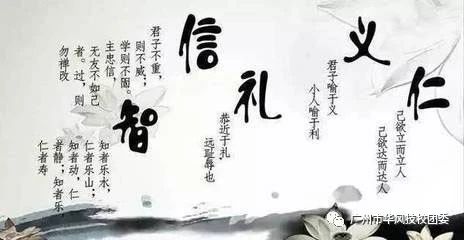 仁
己欲立而立人
己欲达而达人
义
君子喻于义
小人喻于利
礼
恭近于扎
远耻辱也
信
君子不重，
则不威；
学则不固。
主忠信，
无友不如己
者。过，则
勿禅改
智
知者乐水，
仁者乐山；
知者动，仁
者静；知者乐，
仁者寿
广州市华风技校团委